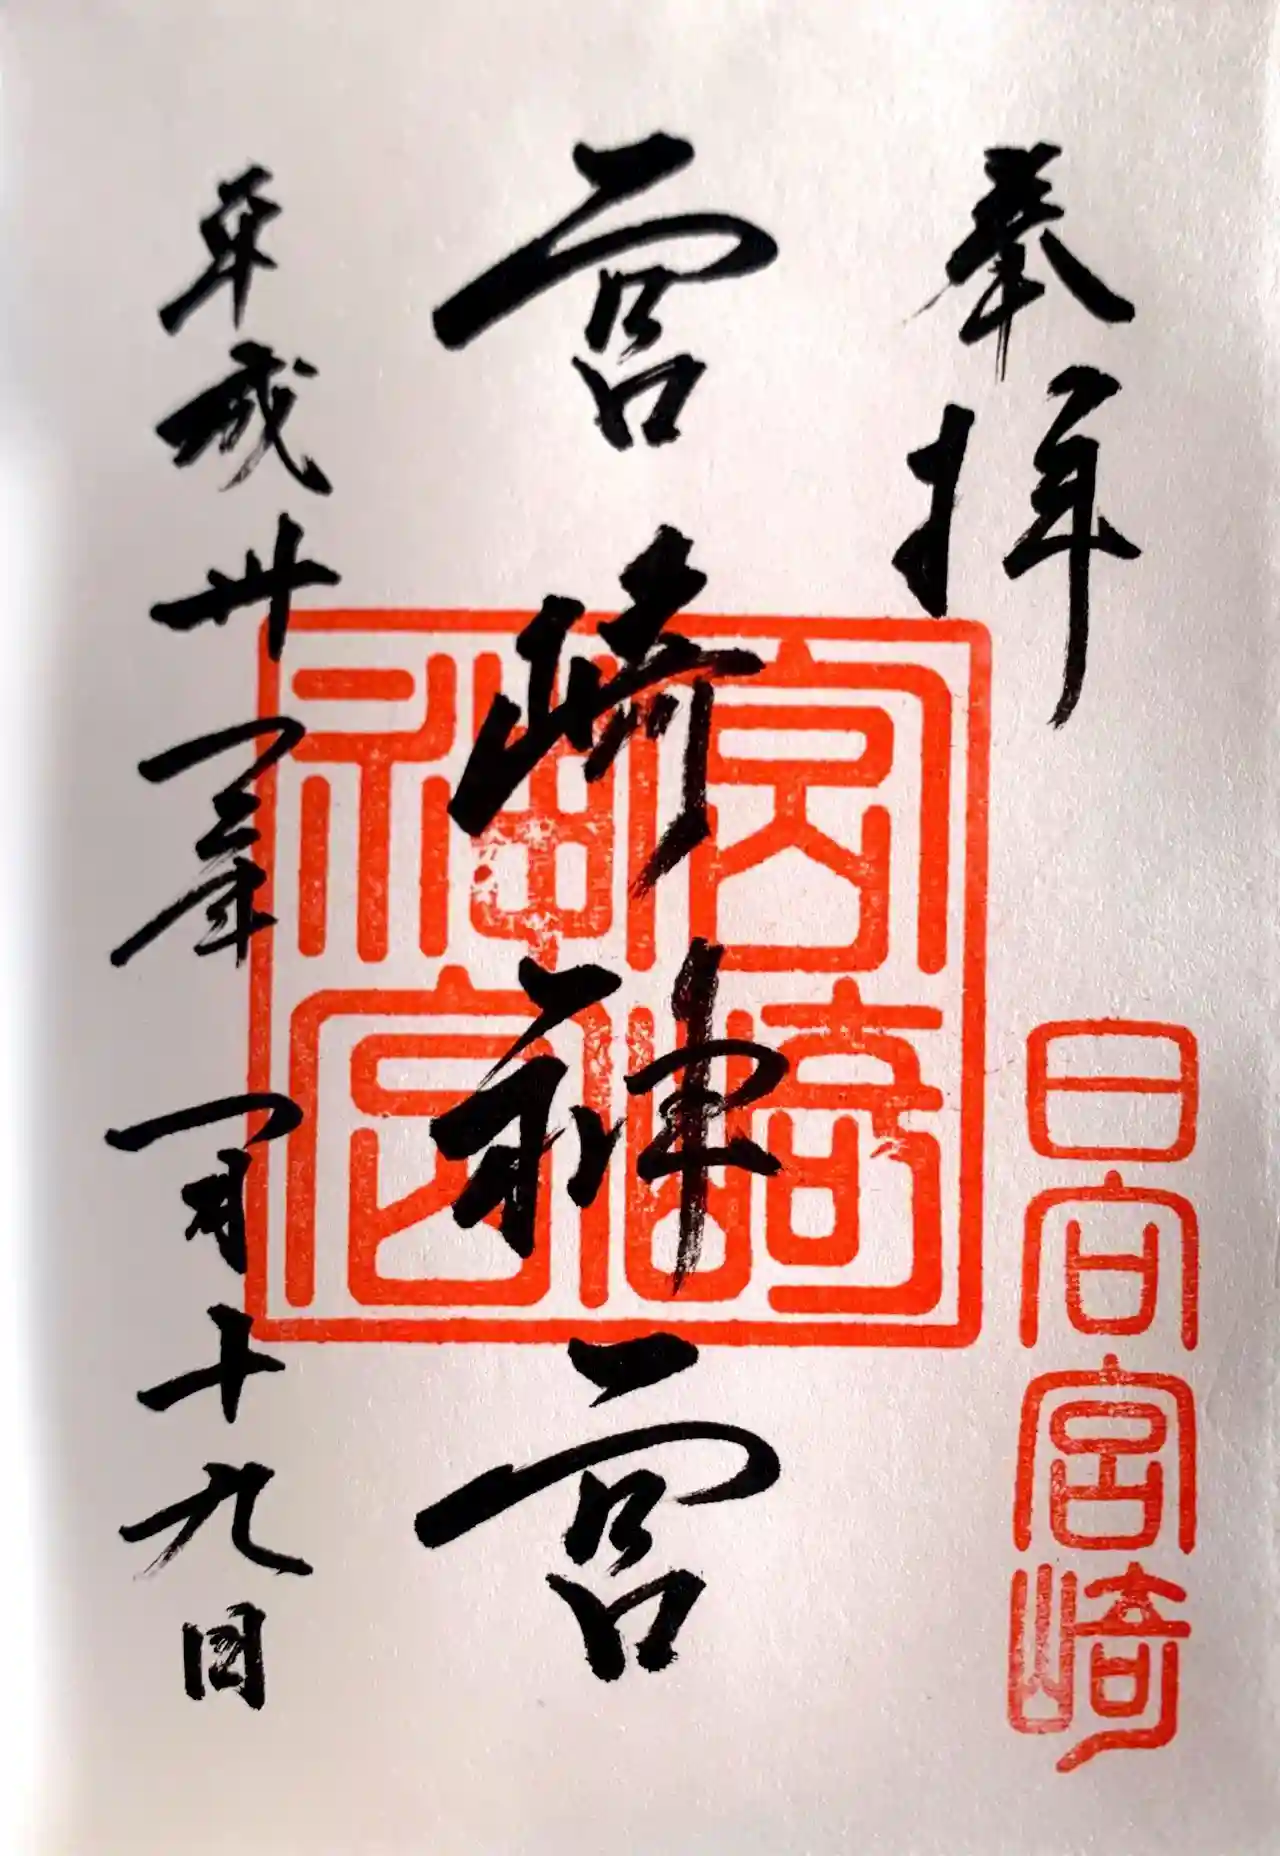 奉拝
日向宮崎
宮崎神宮
宮崎神宮
平成卅一年一月十九日